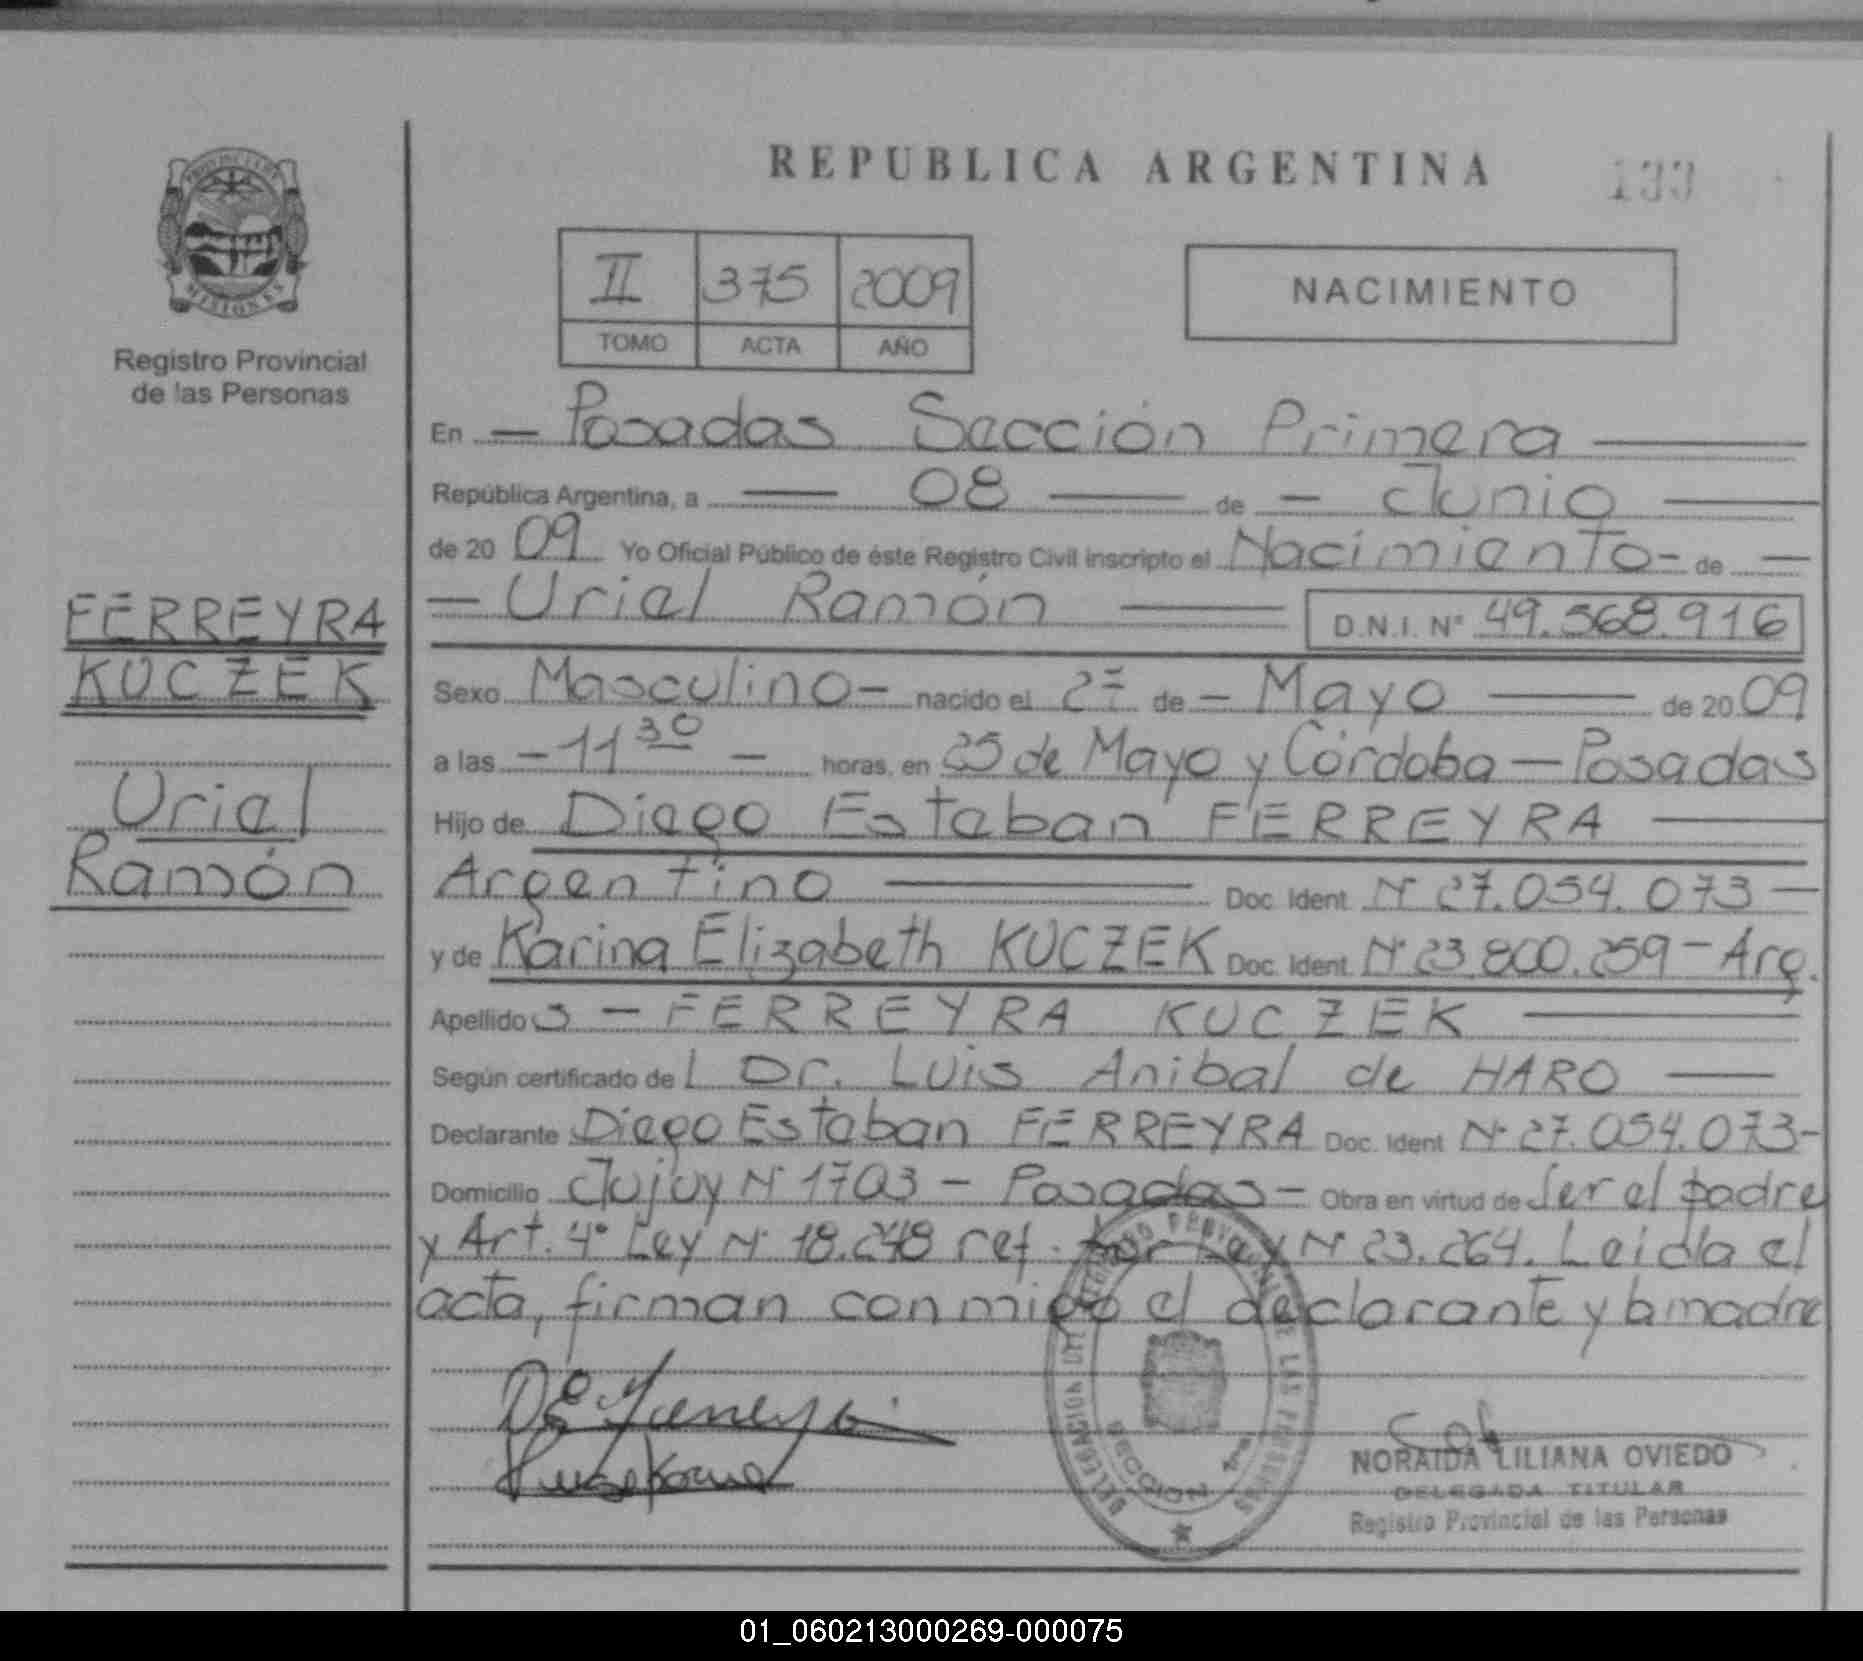 REPUBLICA ARGENTINA
133
PROVINCIA DE MISIONES
Registro Provincial
de las Personas
II 375 2009
TOMO ACTA AÑO
NACIMIENTO
En — Posadas Sección Primera —
República Argentina, a — 08 — de — Junio —
de 2009 Yo Oficial Público de éste Registro Civil inscripto el Nacimiento - de —
— Uriel Ramón — D.N.I. Nº 49.568.916
FERREYRA
KUCZEK
Uriel
Ramón
Sexo Masculino - nacido el 27 de - Mayo — de 2009
a las - 11 30 - horas, en 25 de Mayo y Córdoba — Posadas
Hijo de Diego Esteban FERREYRA —
Argentino — Doc. Ident. Nº 27.054.073 —
y de Karina Elizabeth KUCZEK Doc. Ident. Nº 23.800.259 - Arg.
Apellidos - FERREYRA KUCZEK —
Según certificado del Dr. Luis Anibal de HARO —
Declarante Diego Esteban FERREYRA Doc. Ident. Nº 27.054.073-
Domicilio Jujuy Nº 1703 - Posadas - Obra en virtud de ser el padre
y Art. 4º Ley Nº 18.248 ref. por Ley Nº 23.264. Leida el
acta, firman conmigo el declarante y la madre
DELEGACION DEL REGISTRO PROVINCIAL DE LAS PERSONAS
SECCION 1ra
NORAIDA LILIANA OVIEDO
DELEGADA TITULAR
Registro Provincial de las Personas
01_060213000269-000075